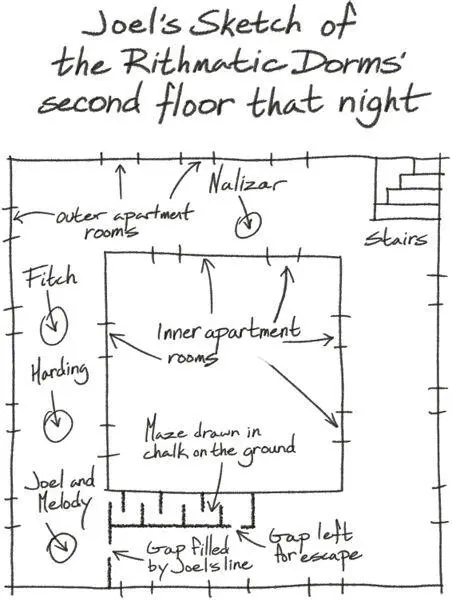 Joel's Sketch of
the Rithmatic Dorms'
second floor that night
Nalizar
outer apartment
rooms
Stairs
Fitch
Inner apartment
rooms
Harding
Maze drawn in
chalk on the ground
Joel and
Melody
Gap filled
by Joel's line
Gap left
for escape